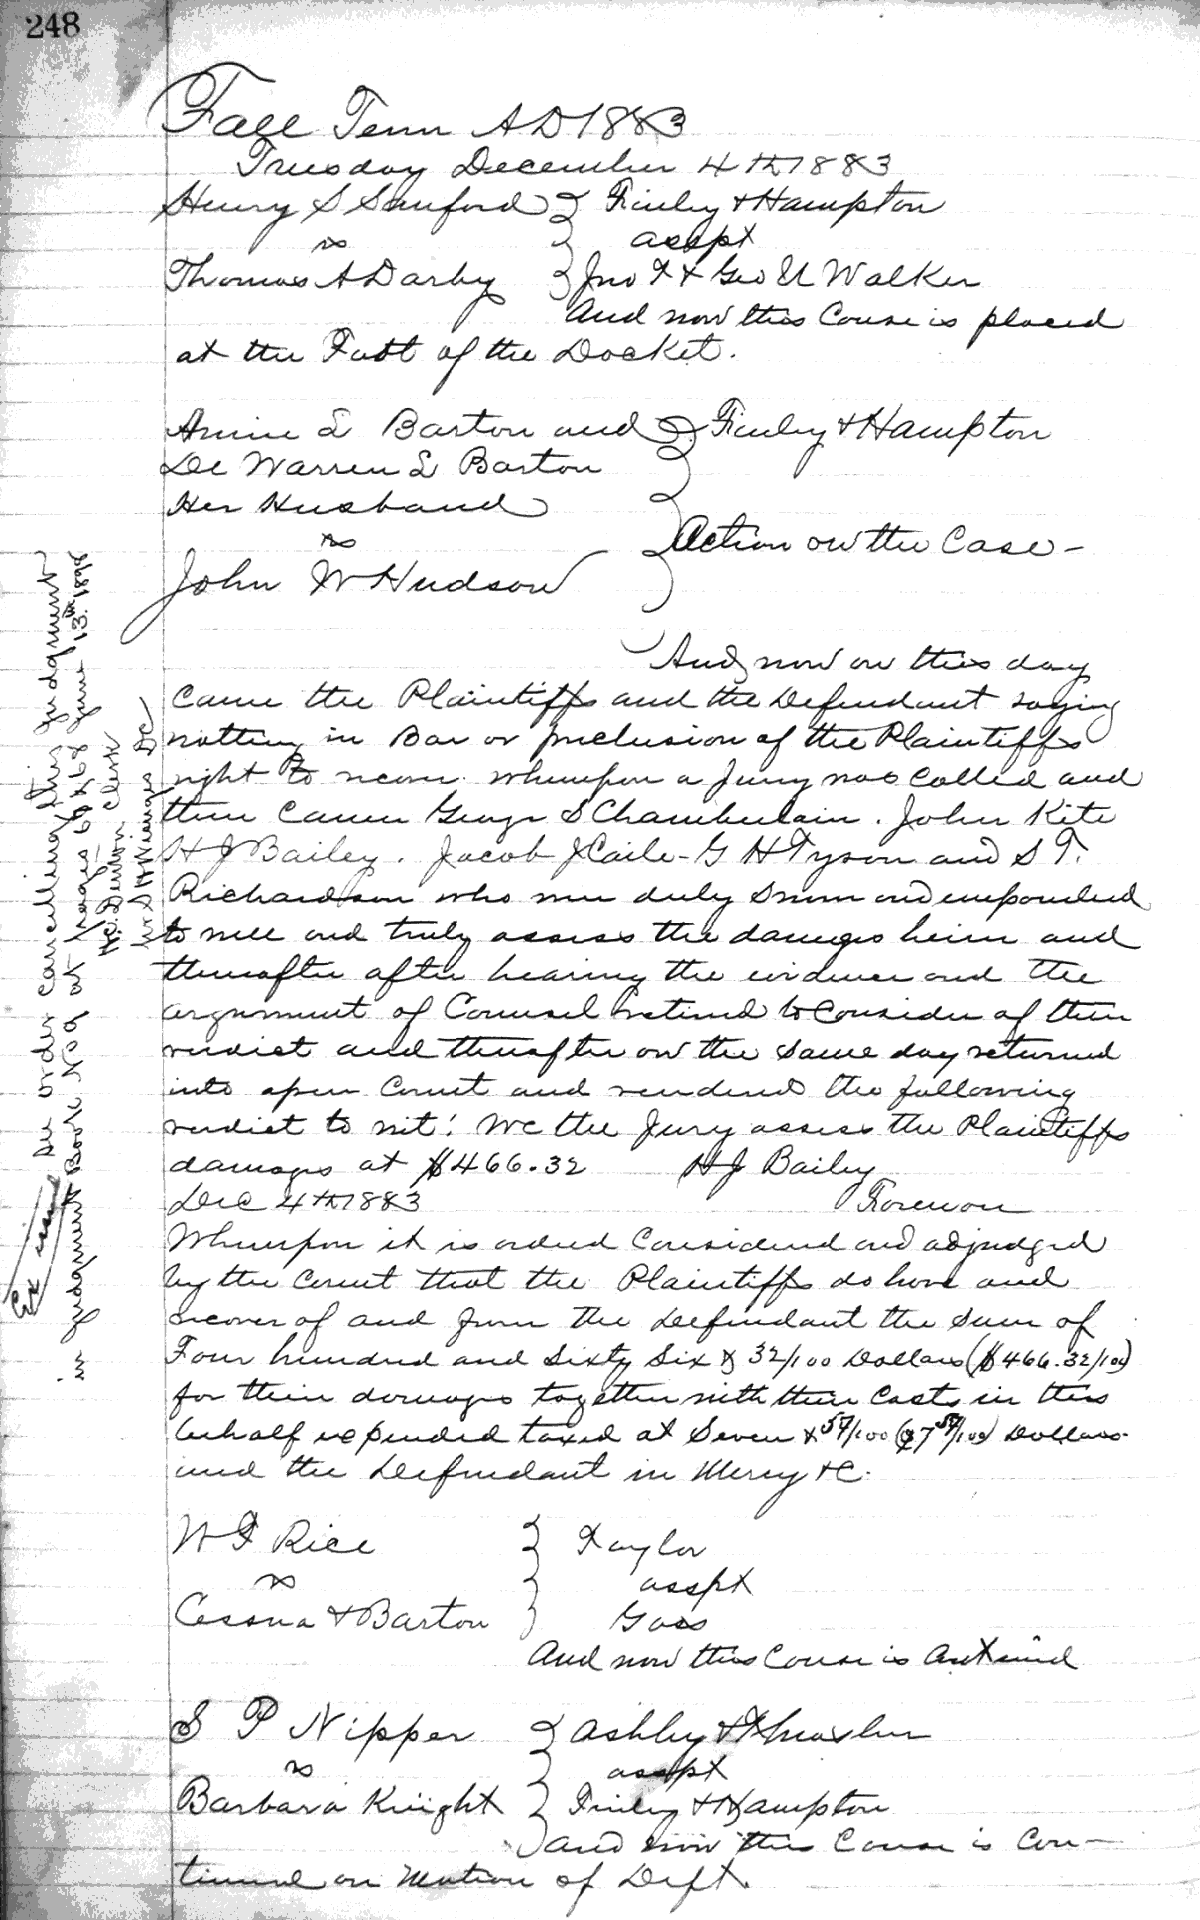 248
Fall Term AD 1883
Tuesday December 4th 1883
Henry S Sanford } Finley & Hampton
vs asspt
Thomas A Darby } Jno F & Geo U Walker
And now this Cause is placed
at the Foot of the Docket.
Annie L Barton and } Finley & Hampton
De Warren L Barton
Her Husband
vs } Action on the Case -
John W Hudson
And now on this day
Came the Plaintiffs and the Defendant saying
nothing in Bar or preclusion of the Plaintiffs
right to recover. whereupon a Jury was Called and
then Came George S Chamberlain. John Kite
H J Bailey. Jacob J Caile - G H Tyson and S T.
Richardson who were duly sworn and empaneled
to well and truly assess the damages herein and
thereafter after hearing the evidence and the
argument of Counsel retired to Consider of their
verdict and thereafter on the same day returned
into open Court and rendered the following
verdict to wit: We the Jury assess the Plaintiffs
damages at $466.32 H J Bailey
Dec 4th 1883 Foreman
Whereupon it is ordered Considered and adjudged
by the Court that the Plaintiffs do have and
recover of and from the Defendant the Sum of
Four hundred and Sixty Six & 32/100 Dollars ($466.32/100)
for their damages together with their Costs in this
behalf expended taxed at Seven & 57/100 ($7 57/100) Dollars
and the Defendant in Mercy &C.
W F Rice } Taylor
vs asspt
Cessna & Barton } Goss
And now this Cause is
S P Nipper } Ashley &
vs asspt
Barbara Knight } Finley & Hampton
And now this Cause is Con-
tinued on Motion of Deft.
Ex issued
See order cancelling this judgment
in Judgment Book No 9 at Pages 67 & 68 June 13th 1898
H.C. Denton Clerk
by S H Wienges DC